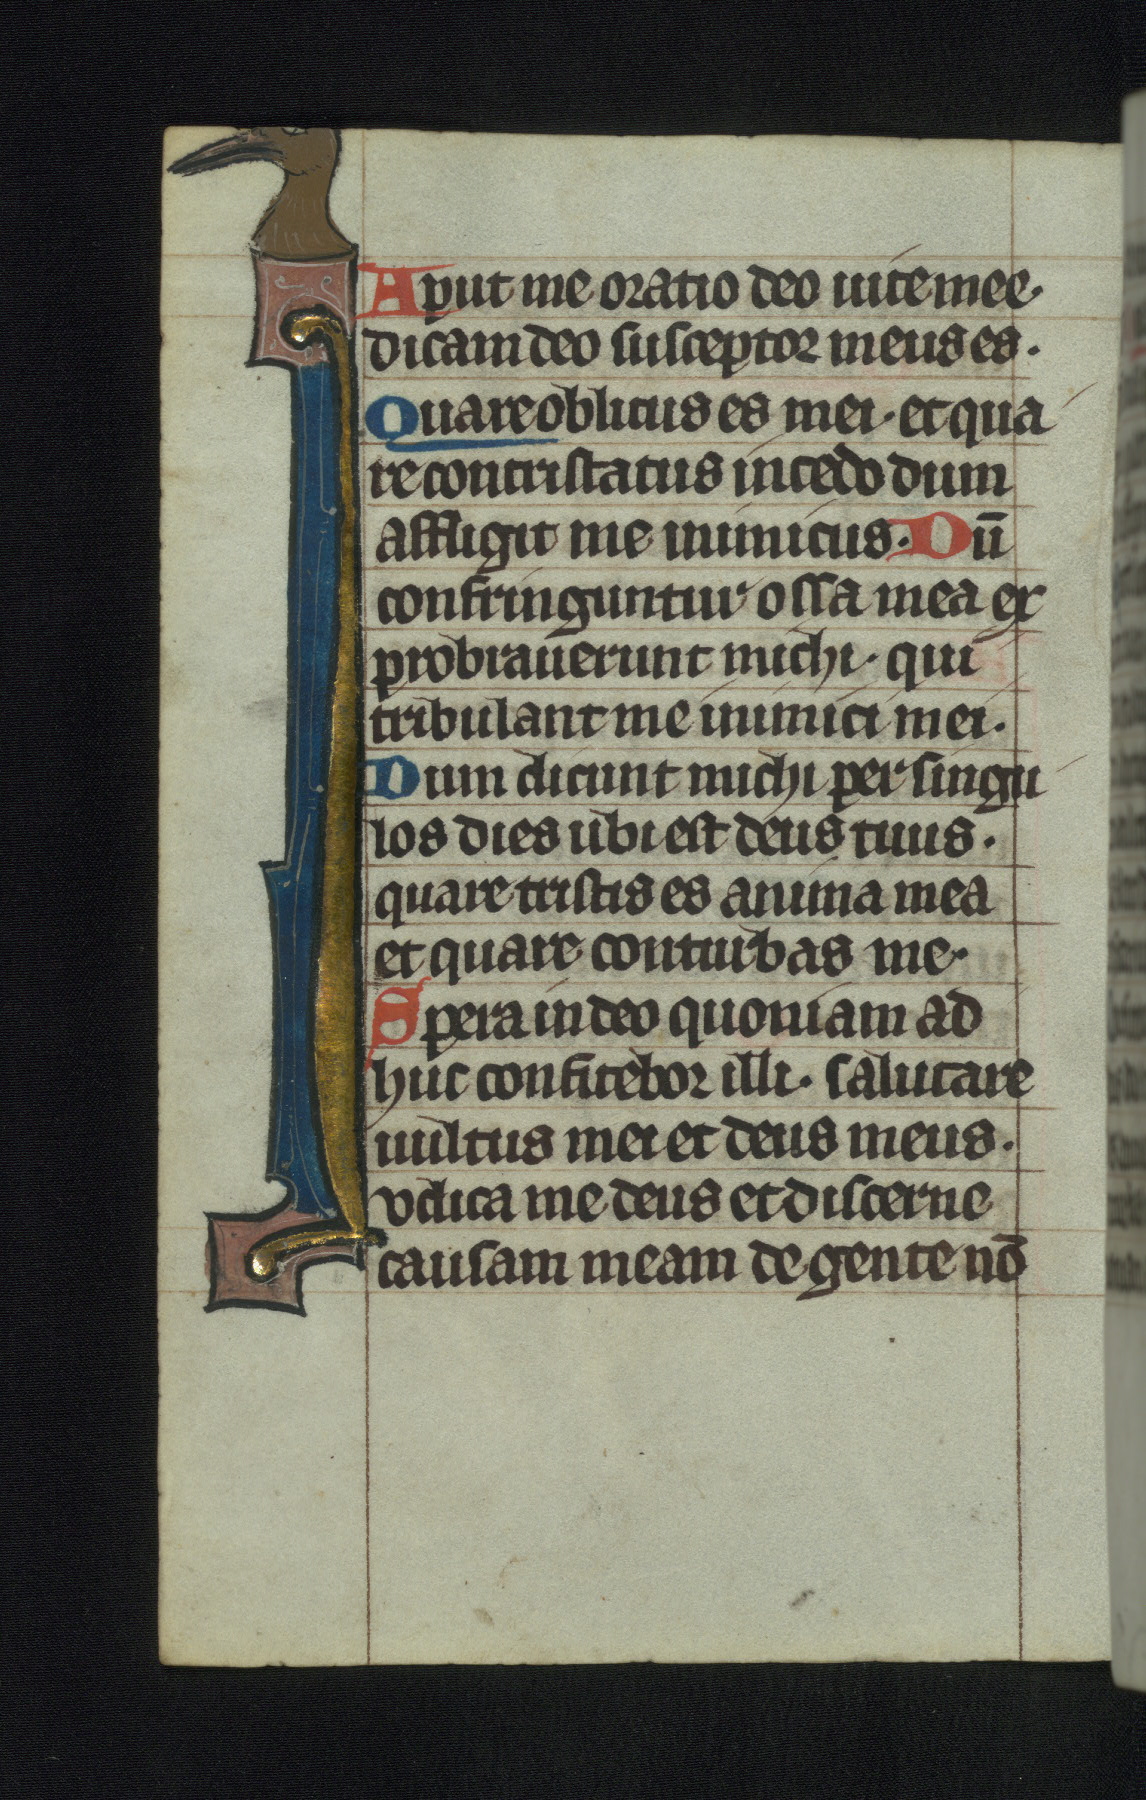 Aput me oratio deo uite mee·
dicam deo susceptor meus es·
Quare oblitus es mei· et qua
re contristatus incedo dum
affligit me inimicus· Dū
confringuntur ossa mea ex
probrauerunt michi· qui
tribulant me inimici mei·
Dum dicunt michi per singu
los dies ubi est deus tuus·
quare tristis es anima mea
et quare conturbas me·
Spera in deo quoniam ad
huc confitebor illi· salutare
uultus mei et deus meus·
udica me deus et discerne
causam meam de gente nō